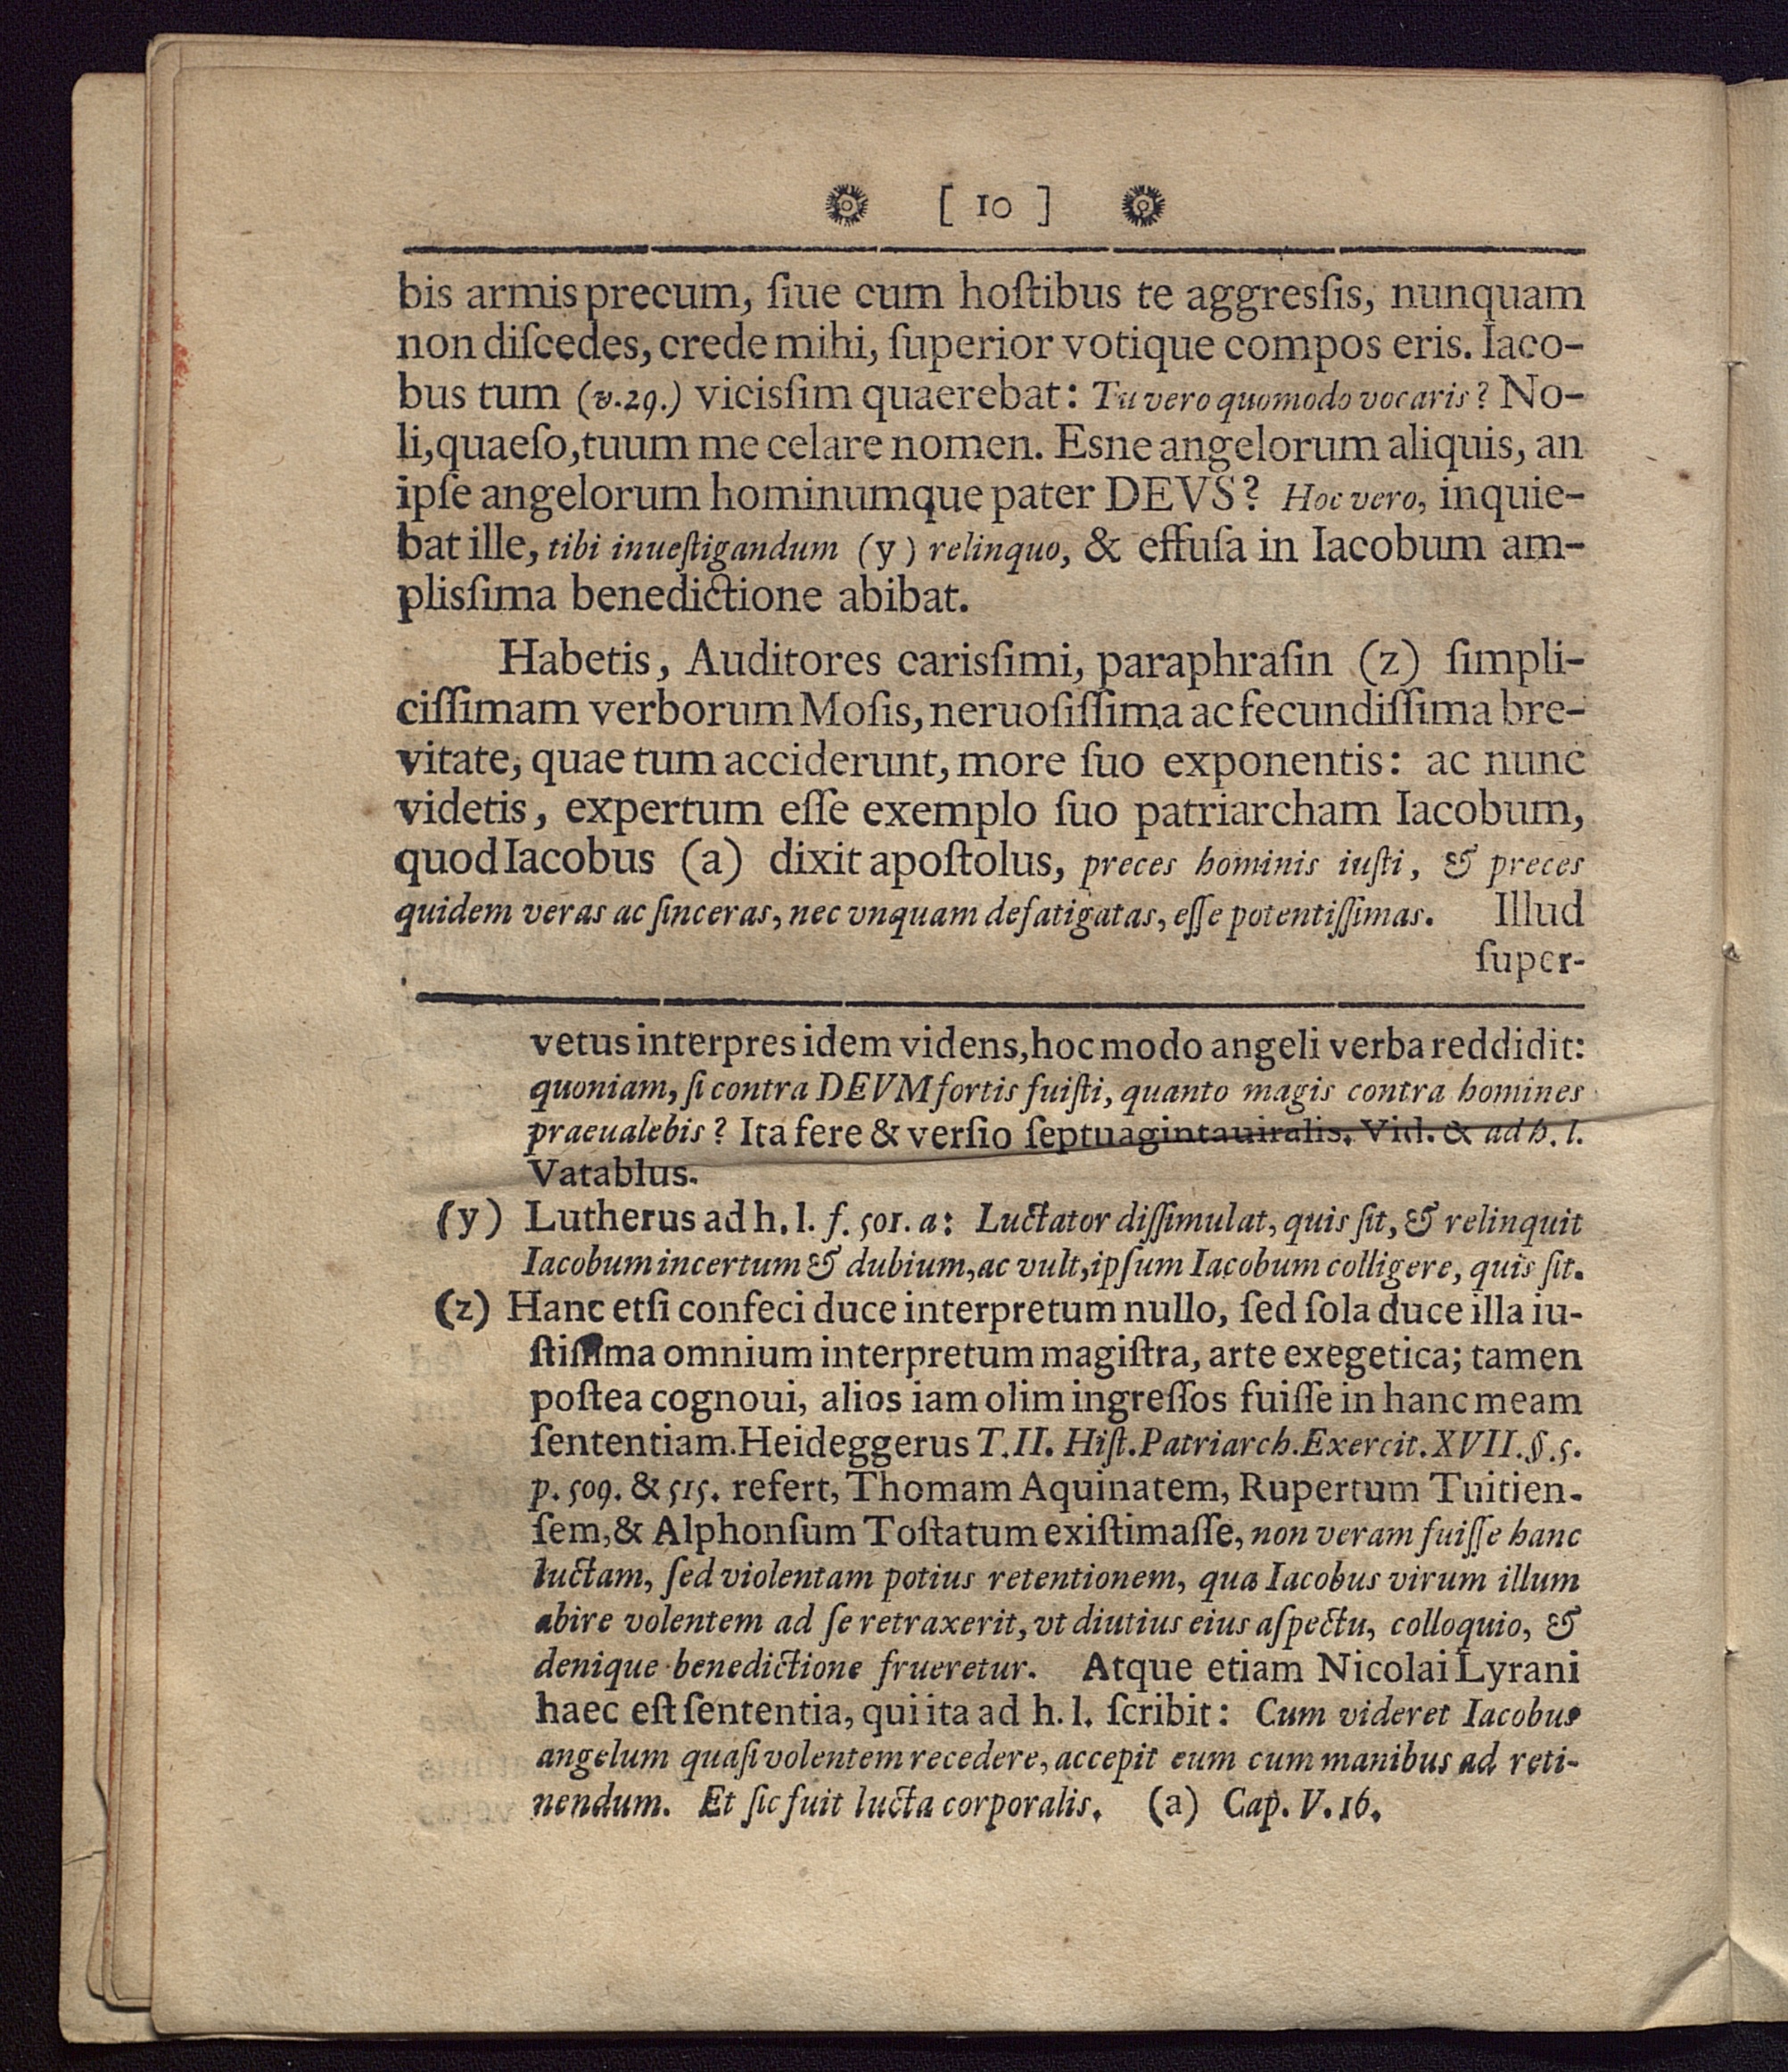 [ 10 ]
bis armis precum, ſiue cum hoſtibus te aggresſis, nunquam
non diſcedes, crede mihi, ſuperior votique compos eris. Iaco-
bus tum (v.29.) vicisſim quaerebat: Tu vero quomodo vocaris? No-
li, quaeſo, tuum me celare nomen. Esne angelorum aliquis, an
ipſe angelorum hominumque pater DEVS? Hoc vero, inquie-
bat ille, tibi inueſtigandum (y) relinquo, & effuſa in Iacobum am-
plisſima benedictione abibat.
Habetis, Auditores carisſimi, paraphraſin (z) ſimpli-
ciſſimam verborum Moſis, neruoſiſſima ac fecundiſſima bre-
vitate, quae tum acciderunt, more ſuo exponentis: ac nunc
videtis, expertum eſſe exemplo ſuo patriarcham Iacobum,
quod Iacobus (a) dixit apoſtolus, preces hominis iuſti, & preces
quidem veras ac ſinceras, nec vnquam defatigatas, eſſe potentiſſimas. Illud
ſuper-
vetus interpres idem videns, hoc modo angeli verba reddidit:
quoniam, ſi contra DEVM fortis fuiſti, quanto magis contra homines
praeualebis? Ita fere & verſio ſeptuagintauiralis. Vid. & ad h. l.
Vatablus.
(y) Lutherus ad h. l. f. 501. a: Luctator diſſimulat, quis ſit, & relinquit
Iacobum incertum & dubium, ac vult, ipſum Iacobum colligere, quis ſit.
(z) Hanc etſi confeci duce interpretum nullo, ſed ſola duce illa iu-
ſtiſſima omnium interpretum magiſtra, arte exegetica; tamen
poſtea cognoui, alios iam olim ingreſſos fuiſſe in hanc meam
ſententiam. Heideggerus T. II. Hiſt. Patriarch. Exercit. XVII. §. 5.
p. 509. & 515. refert, Thomam Aquinatem, Rupertum Tuitien-
ſem, & Alphonſum Toſtatum exiſtimaſſe, non veram fuiſſe hanc
luctam, ſed violentam potius retentionem, qua Iacobus virum illum
abire volentem ad ſe retraxerit, vt diutius eius aſpectu, colloquio, &
denique benedictione frueretur. Atque etiam Nicolai Lyrani
haec eſt ſententia, qui ita ad h. l. ſcribit: Cum videret Iacobus
angelum quaſi volentem recedere, accepit eum cum manibus ad reti-
nendum. Et ſic fuit lucta corporalis. (a) Cap. V. 16.